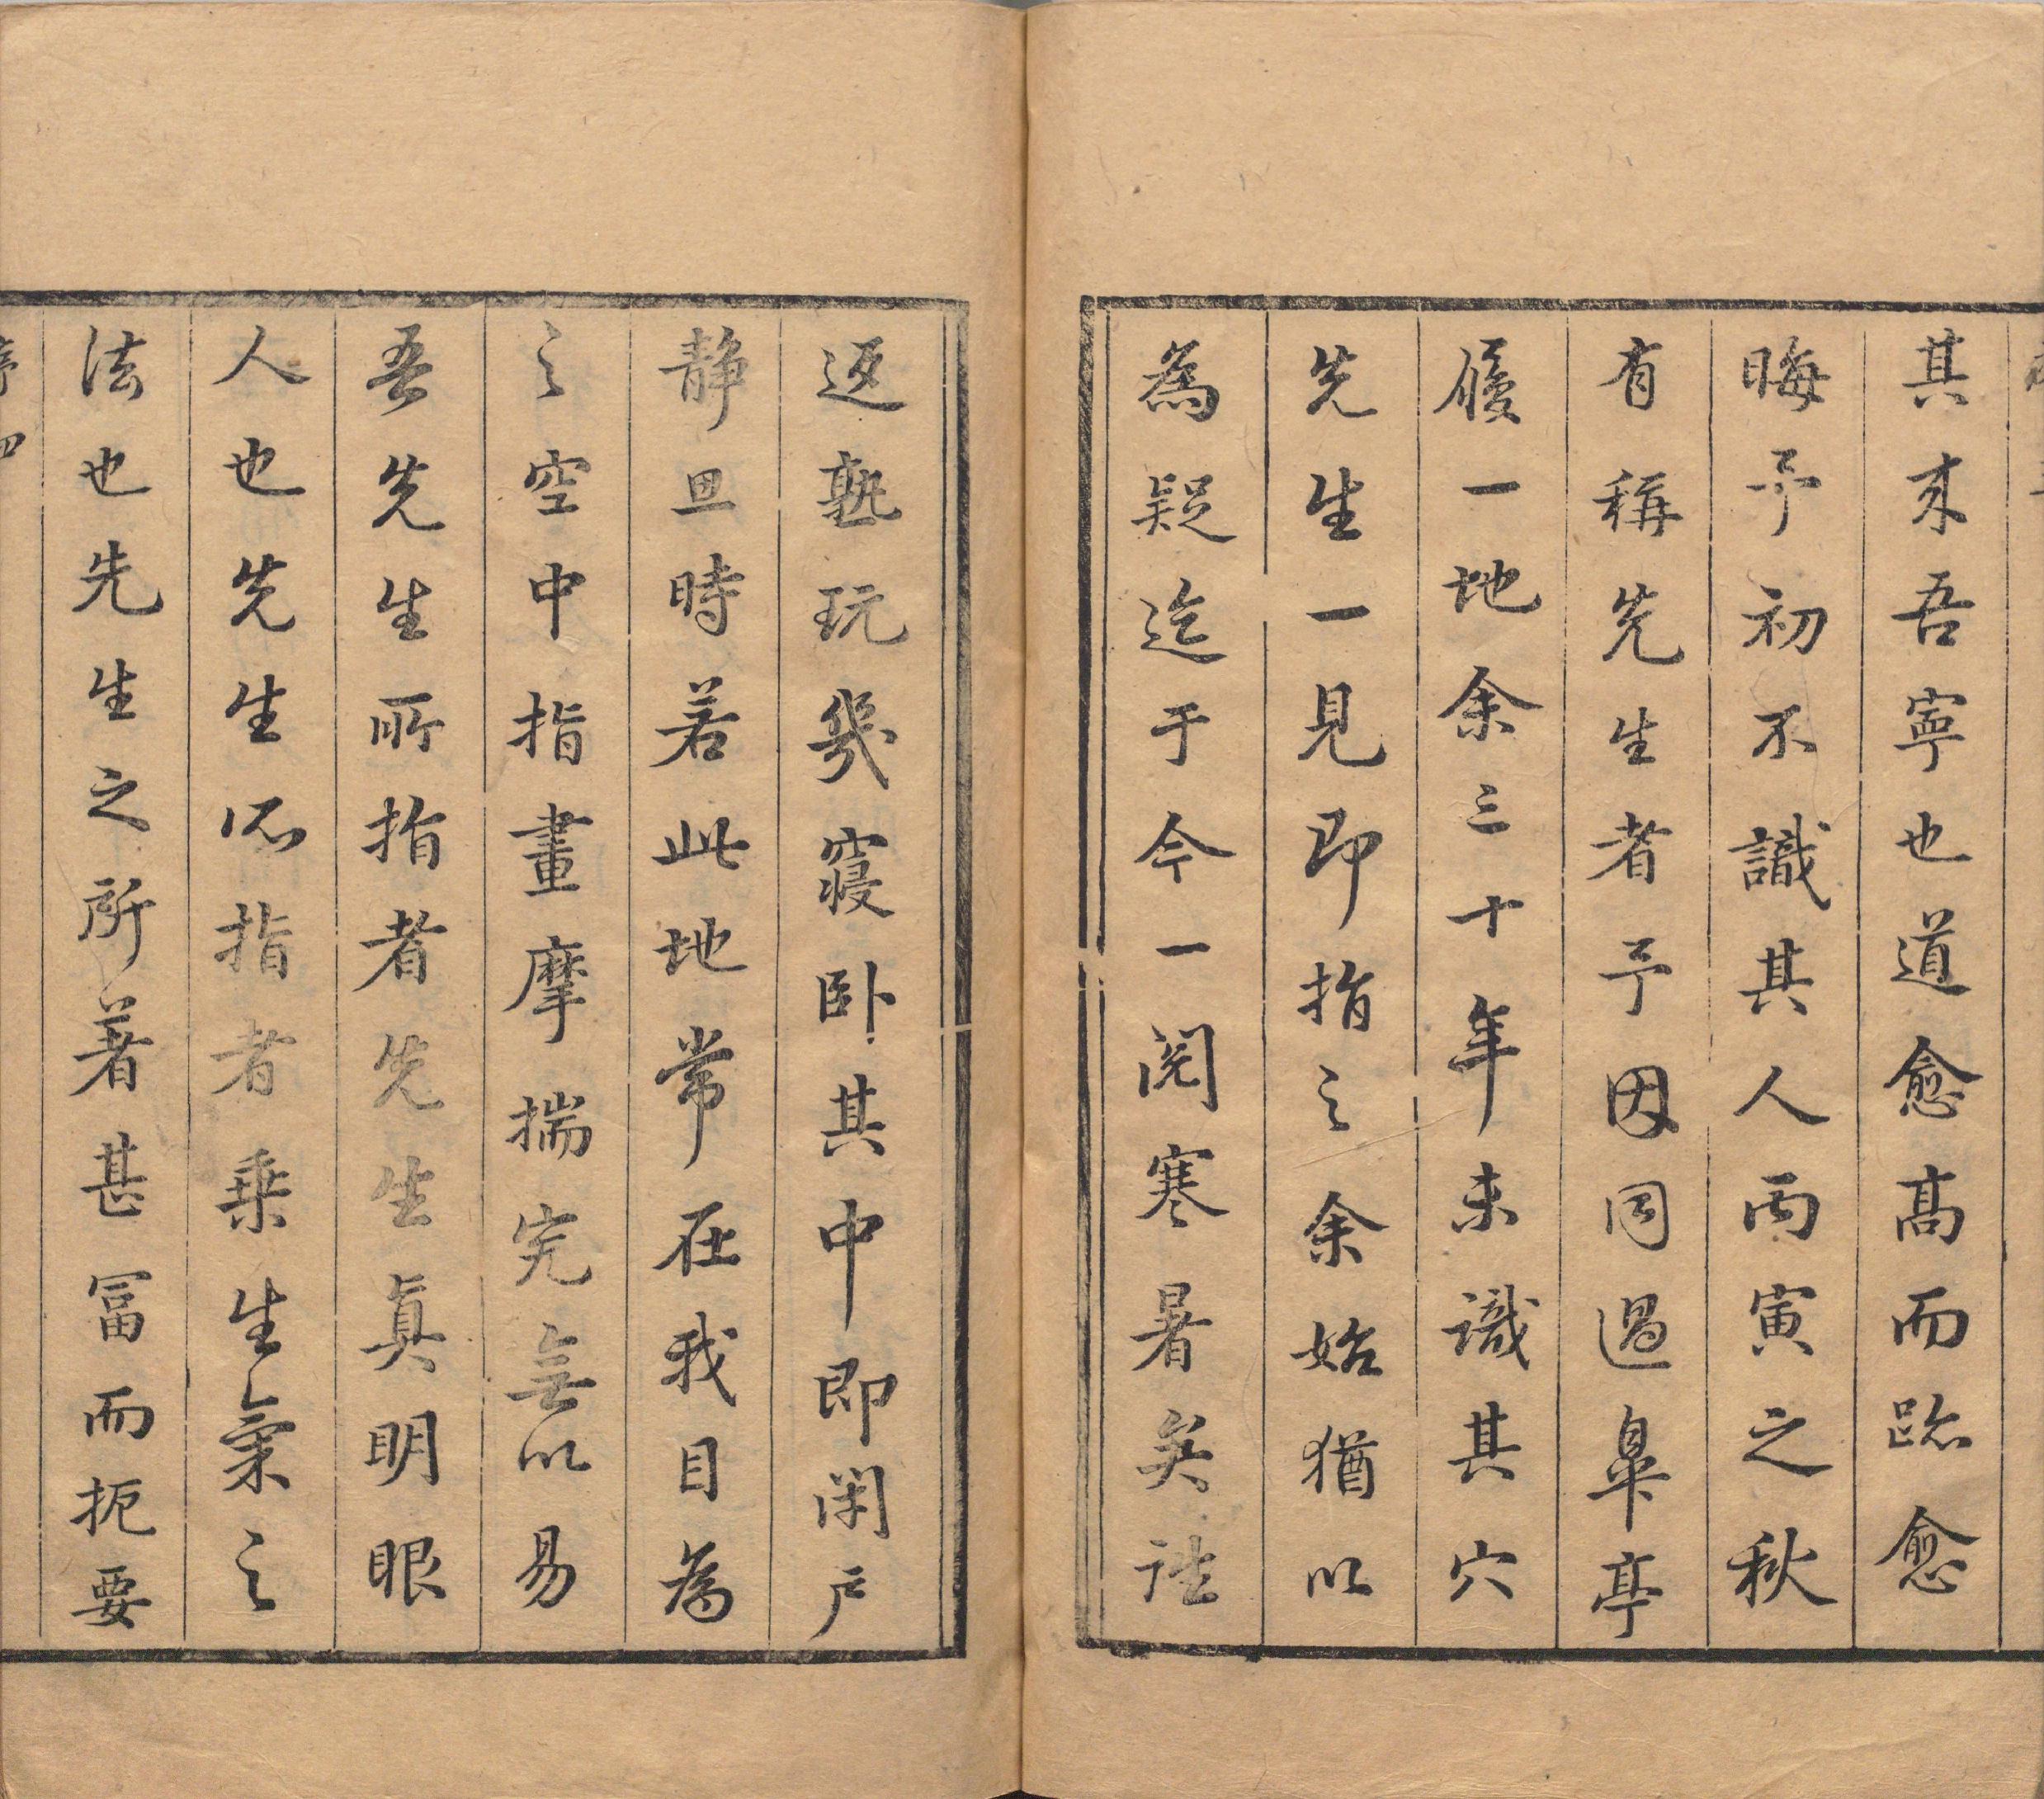 其來吾寧也道愈高而跡愈
晦予初不識其人丙寅之秋
有稱先生者予因同過皐亭
履一地余三十年未識其穴
先生一見即指之余始猶以
為疑迄于今一閱寒暑矣往
返熟玩幾寢卧其中即閑戶
靜思時若此地常在我目為
之空中指畫摩揣究無以易
吾先生所指者先生真明眼
人也先生所指者乗生氣之
法也先生之所著甚冨而扼要
序四